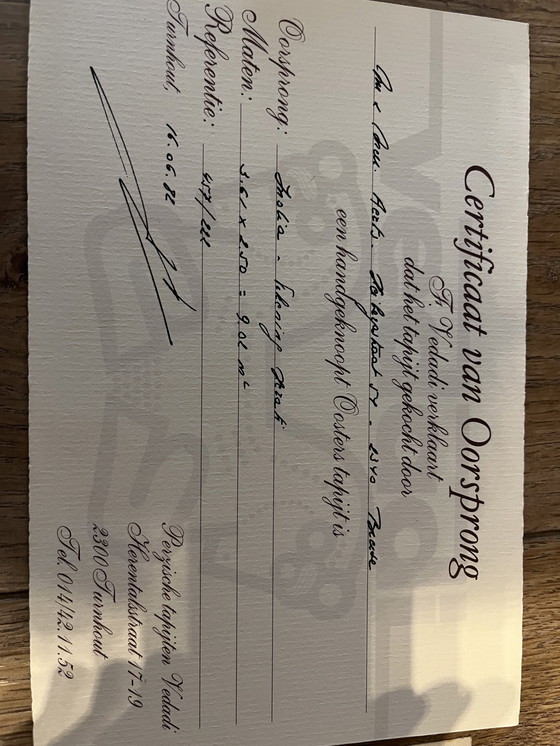 Certificaat van Oorsprong
F. Vedadi verklaart
dat het tapijt gekocht door
Aerts - 54 - 2340 Beerse
een handgeknoopt Oosters tapijt is
Oorsprong: India -
Maten: 3.61 x 2.50 = 9.02 m²
Referentie: 457/222
Turnhout, 16.06.82
Perzische tapijten Vedadi
Herentalsstraat 17-19
2300 Turnhout
Tel. 014/42.11.52